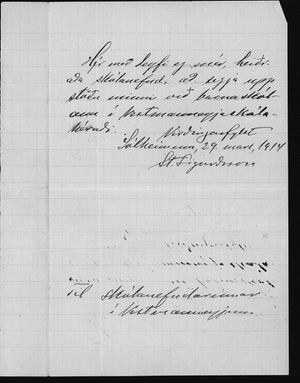 Hjer með leyfi eg mér, heiðr-
aða skólanefnd, að segja upp
stöðu minni við barnaskól-
ann í Vestmannaeyjaskóla-
héraði.
Virðingarfylst
Sólheimum, 29 mars, 1914
St. Sigurðsson
Til skólanefndarinnar
í Vestmannaeyjum